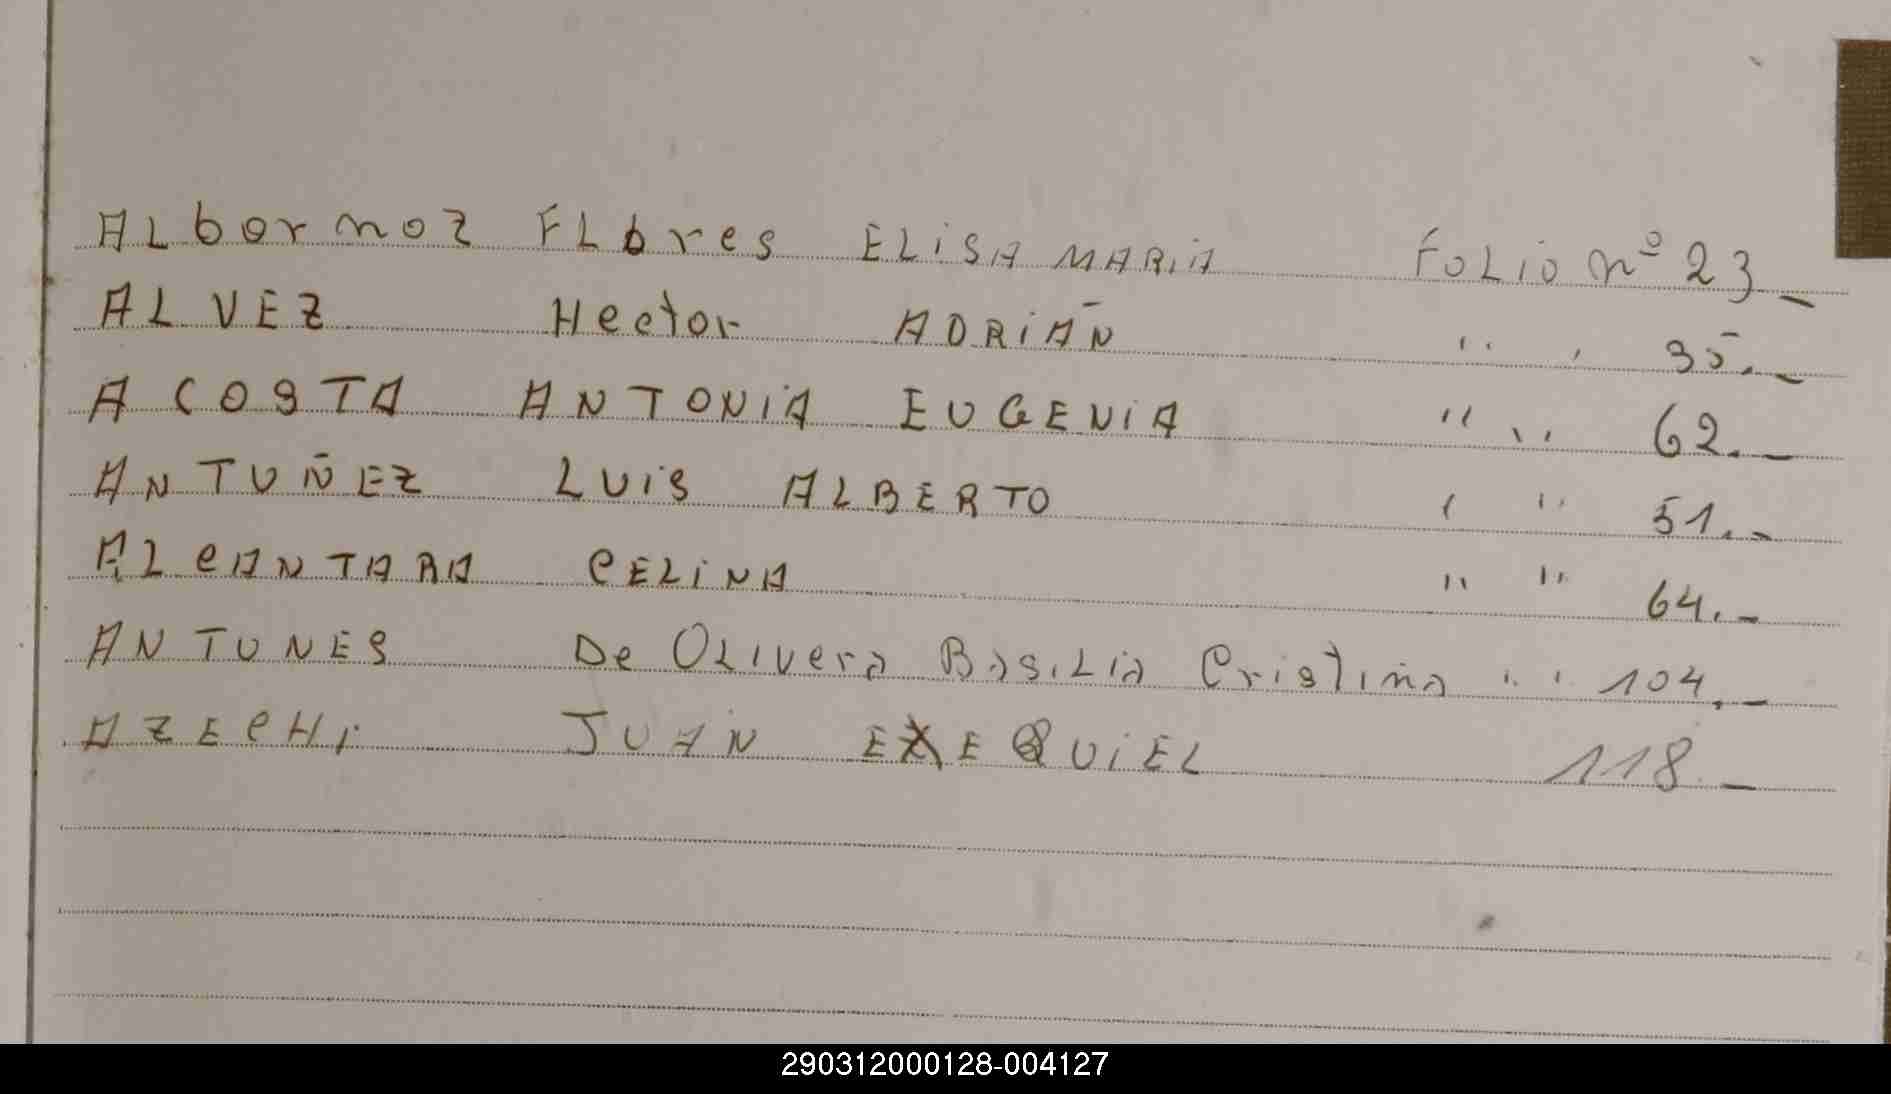 ALbornoz FLores ELiSA MARiA FOLiO nº 23_
ALVEZ Hector ADRiAN " " 35._
ACOSTA ANTONiA EUGENiA " " 62._
ANTUÑEZ LUiS ALBERTO " " 51._
ALCANTARA CELiNA " " 64._
ANTUNES De OLivera BasiLia Cristina " " 104._
AZECHi JUAN EXEQUiEL 118_
290312000128-004127